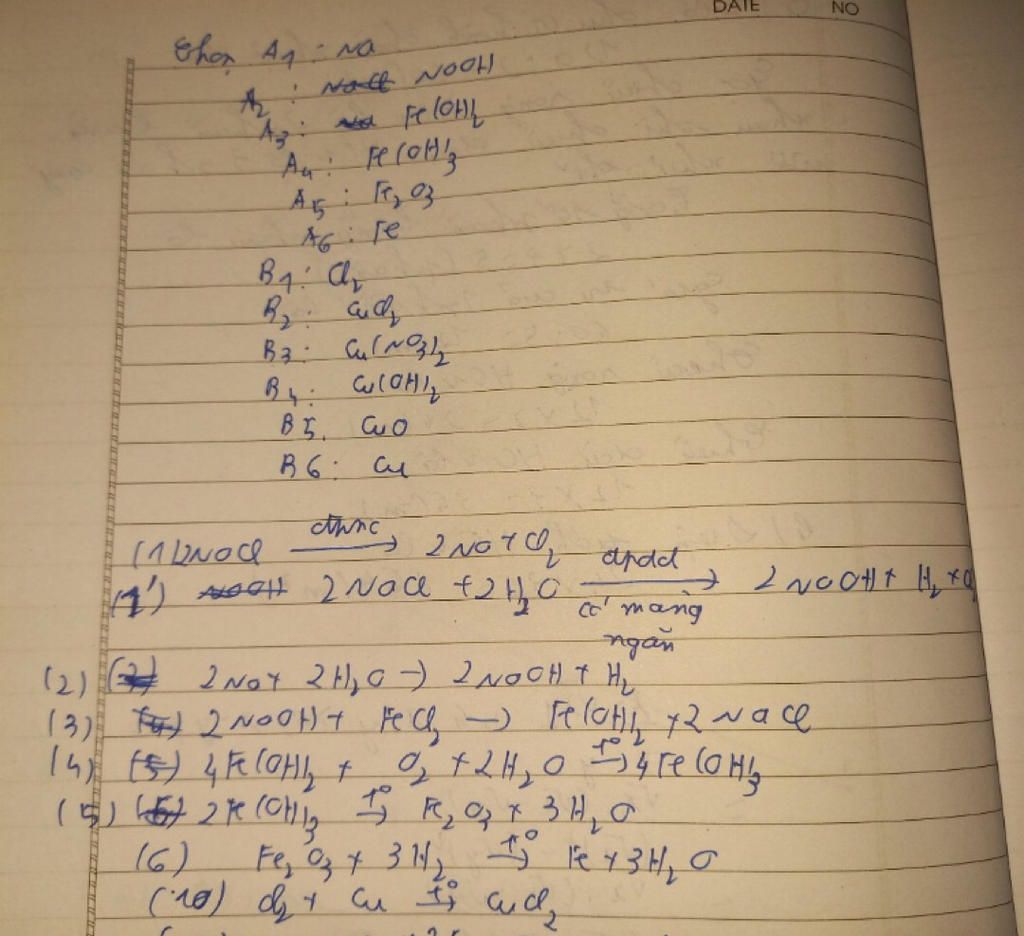 DATE NO
Chọn A1 : Na
A2 : NaCl NaOH
A3 : Na Fe(OH)2
A4 : Fe(OH)3
A5 : Fe2O3
A6 : Fe
B1 : Cl2
B2 : CuCl2
B3 : Cu(NO3)2
B4 : Cu(OH)2
B5. CuO
B6 : Cu
(1) 2NaCl đpnc → 2Na + Cl2
(1') NaOH 2NaCl + 2H2O đpdd → có màng ngăn 2NaOH + H2 + Cl
(2) 2Na + 2H2O → 2NaOH + H2
(3) (4) 2NaOH + FeCl2 → Fe(OH)2 + 2NaCl
(4) (5) 4Fe(OH)2 + O2 + 2H2O t° → 4Fe(OH)3
(5) (6) 2Fe(OH)3 t° → Fe2O3 + 3H2O
(6) Fe2O3 + 3H2 t° → Fe + 3H2O
(10) Cl2 + Cu t° → CuCl2